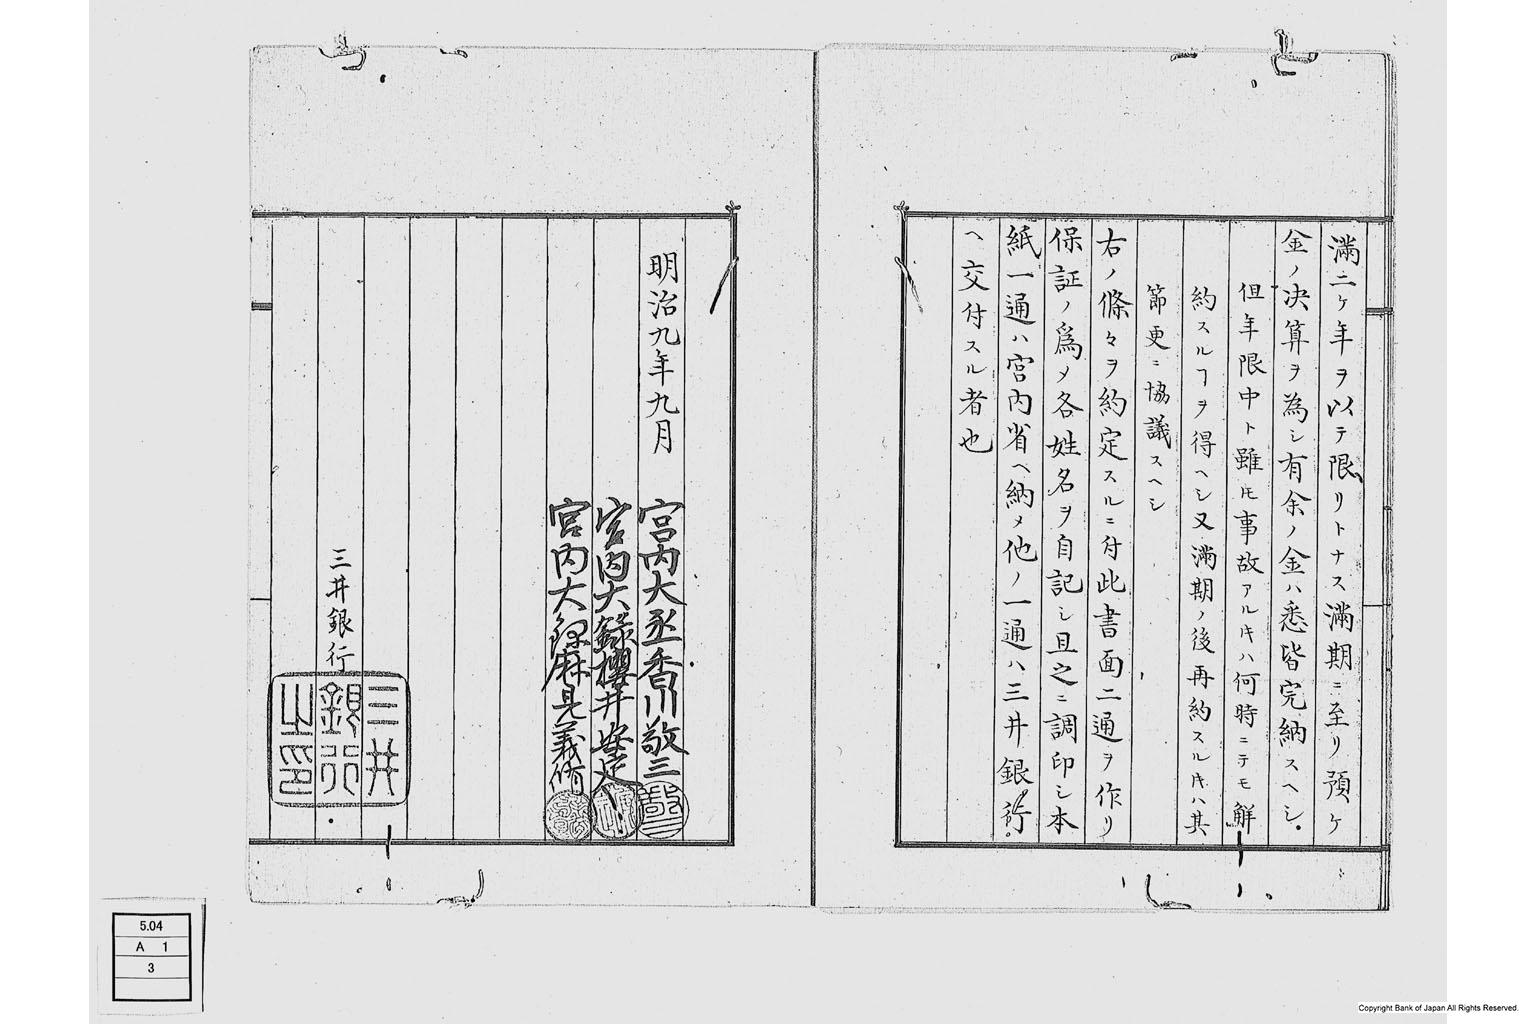 満二ケ年ヲ以テ限リトナス満期ニ至リ預ケ
金ノ決算ヲ為シ有余ノ金ハ悉皆完納スヘシ
但年限中ト雖𪜈事故アル𪜈ハ何時ニテモ解
約スルヿヲ得ヘシ又満期ノ後再約スル𪜈ハ其
節更ニ協議スヘシ
右ノ條々ヲ約定スルニ付此書面二通ヲ作リ
保証ノ爲メ各姓名ヲ自記シ且之ニ調印シ本
紙一通ハ宮内省ヘ納メ他ノ一通ハ三井銀行
ヘ交付スル者也
明治九年九月
宮内大丞香川敬三
宮内大録櫻井安定
宮内大録麻見義脩
三井銀行
三井
銀行
之印
5.04
A 1
3
Copyright Bank of Japan All Rights Reserved.